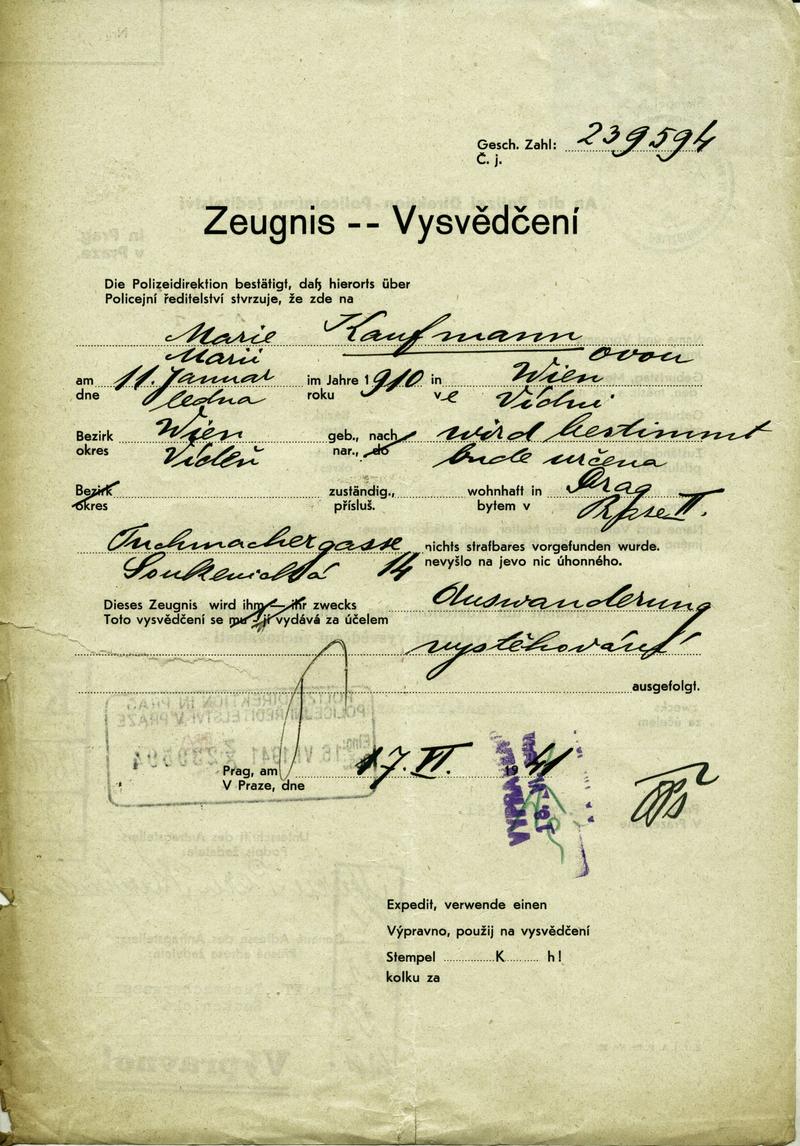 Gesch. Zahl: 239594
Č. j.
Zeugnis -- Vysvědčení
Die Polizeidirektion bestätigt, daß hierorts über
Policejní ředitelství stvrzuje, že zde na
Marie Kaufmann
Marii ovou
am 11. Januar im Jahre 1910 in Wien
dne ledna roku ve Vídni
Bezirk Wien geb., nach wird bestimmt
okres Vídeň nar., do bude určena
Bezirk zuständig., wohnhaft in Prag
okres přísluš. bytem v Praze II.
Tuchmachergasse nichts strafbares vorgefunden wurde.
Soukenická 14 nevyšlo na jevo nic úhonného.
Dieses Zeugnis wird ihm — ihr zwecks Auswanderung
Toto vysvědčení se mu - jí vydává za účelem
vystěhování
ausgefolgt.
Prag, am 17. VI. 1941
V Praze, dne
Expedit, verwende einen
Výpravno, použij na vysvědčení
Stempel K h!
kolku za